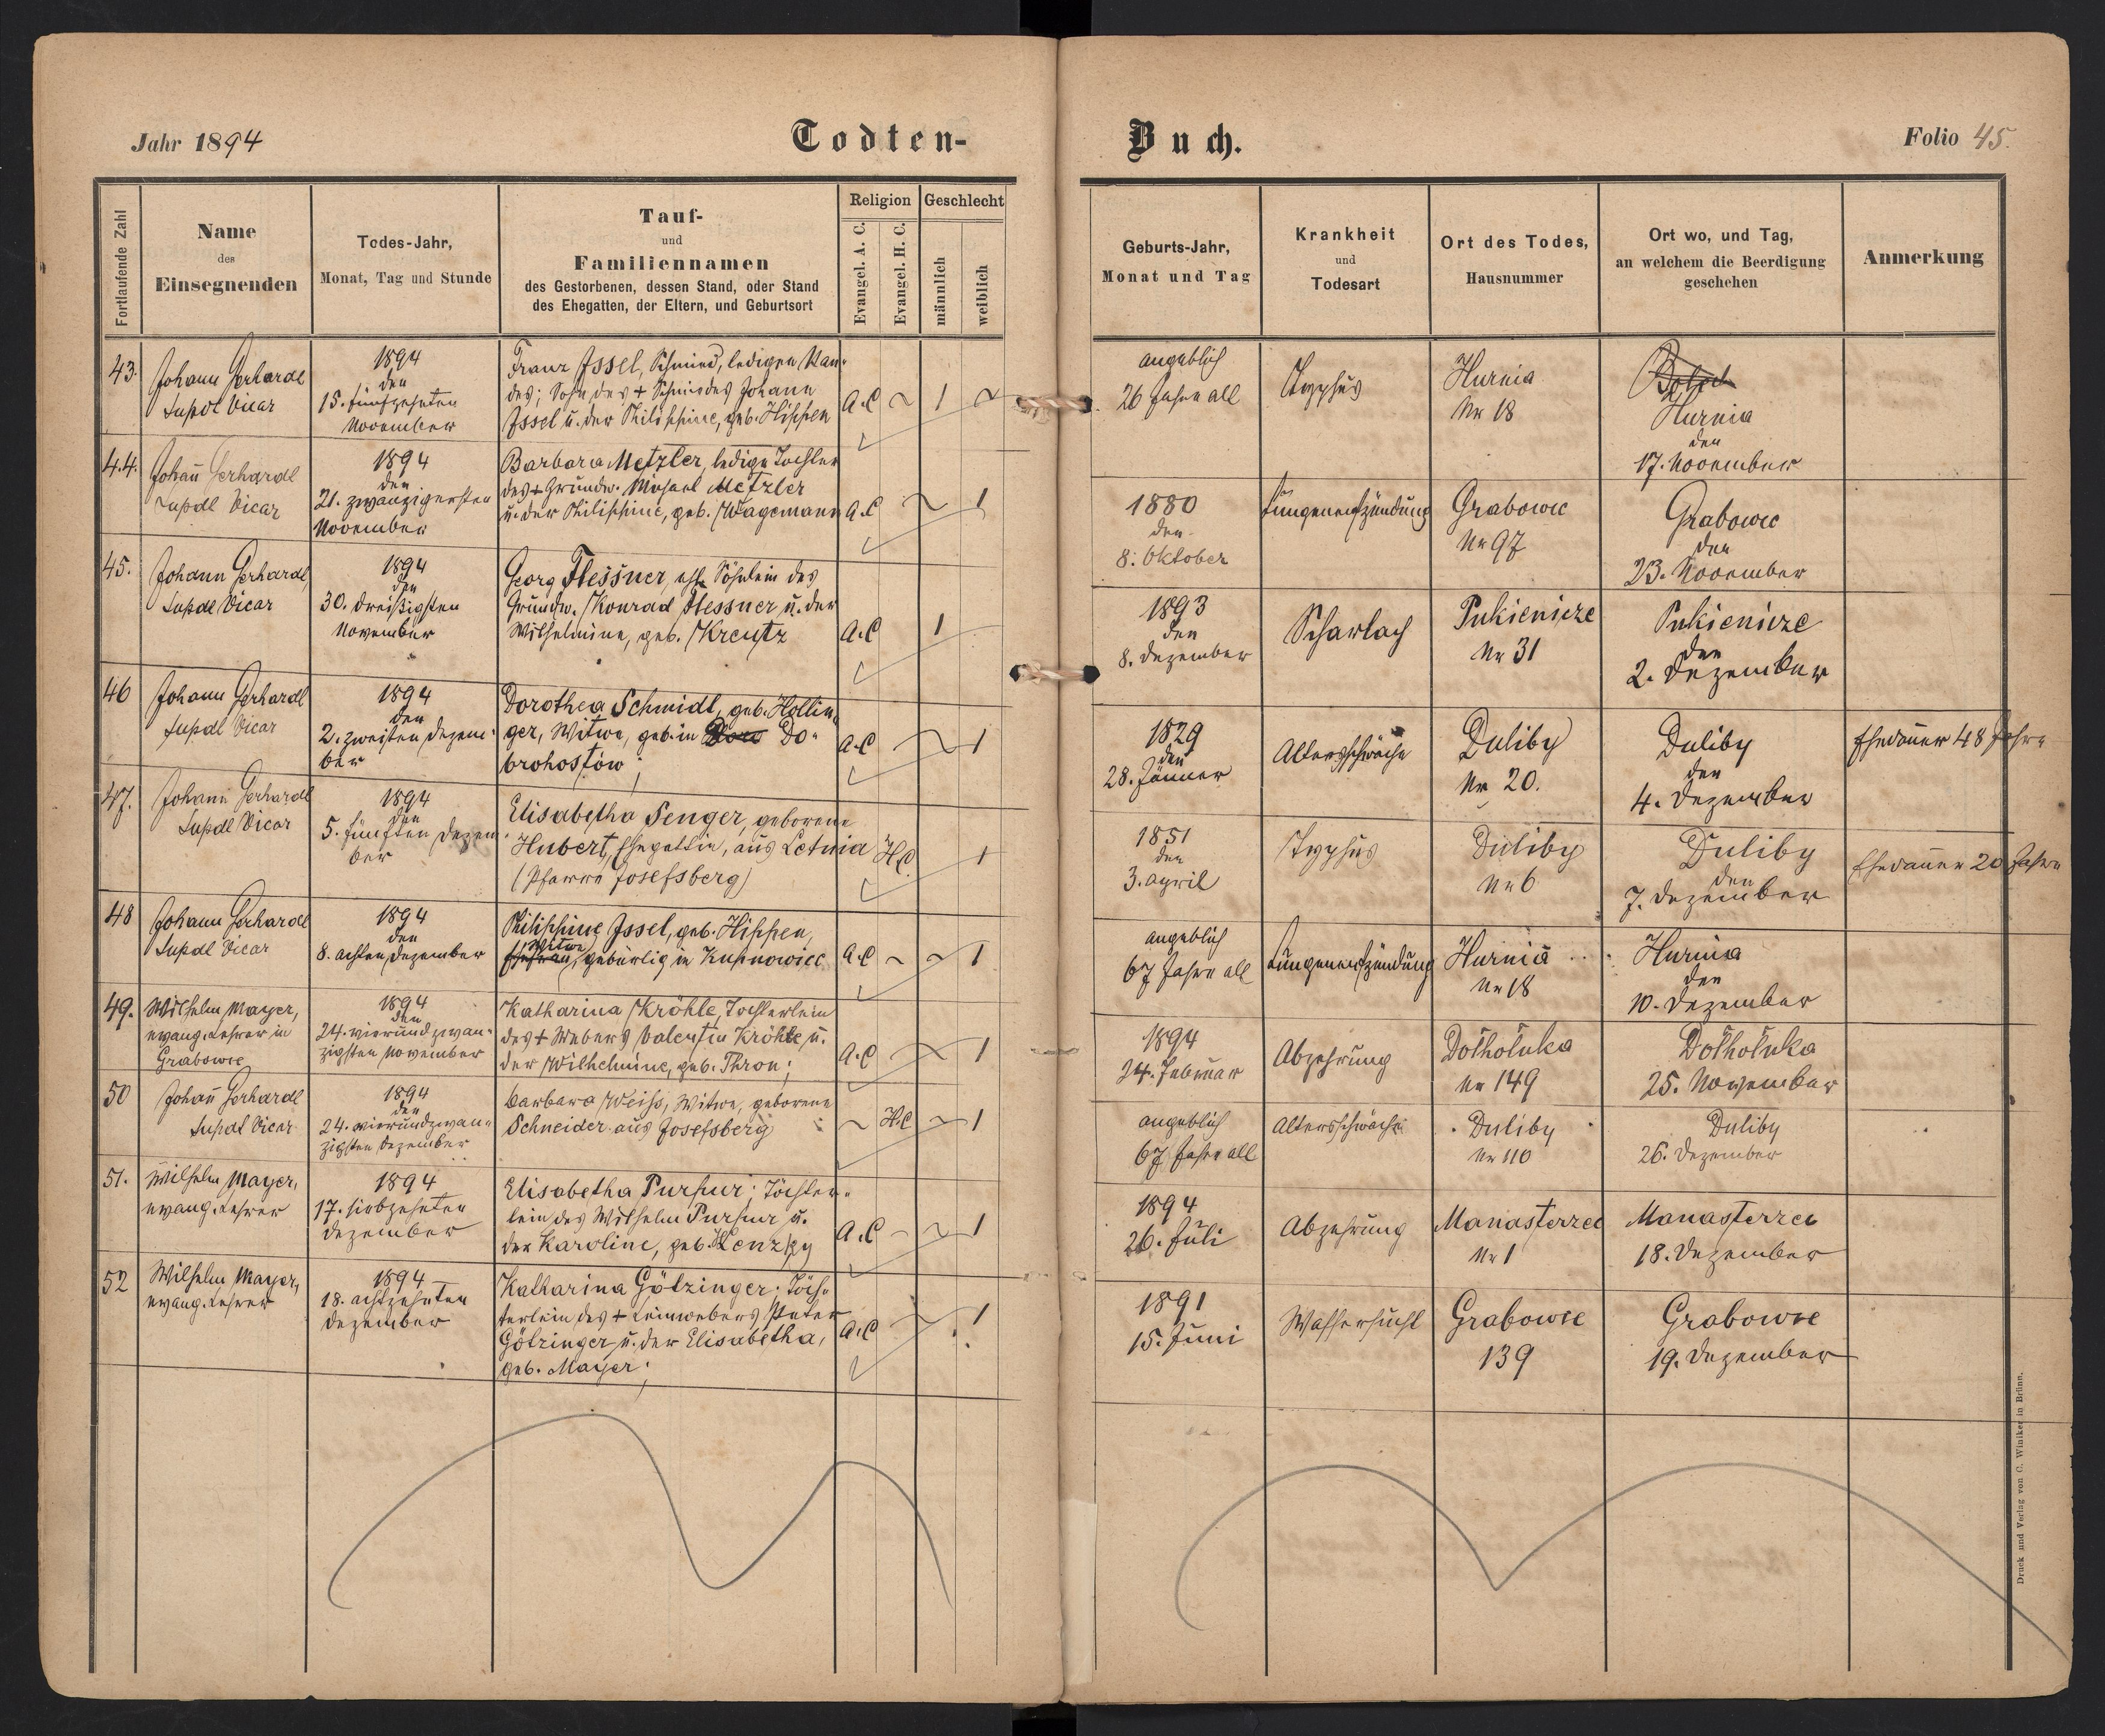 Jahr 1894
Todten-
Buch.
Folio 45.
Fortlaufende Zahl
Name
des
Einsegnenden
Todes-Jahr,
Monat, Tag und Stunde
Tauf-
und
Familiennamen
des Gestorbenen, dessen Stand, oder Stand
des Ehegatten, der Eltern, und Geburtsort
Religion
Evangel. A. C.
Evangel. H. C.
Geschlecht
männlich
weiblich
Geburts-Jahr,
Monat und Tag
Krankheit
und
Todesart
Ort des Todes,
Hausnummer
Ort wo, und Tag,
an welchem die Beerdigung
geschehen
Anmerkung
43.
Johann Gerhardt
Supdt Vicar
1894
den
15. fünfzehnten
November
Franz Issel, Schmied, ledigen Stan-
des; Sohn des + Schmiedes Johann
Issel u. der Philippine, geb. Hippen
A.C ~ 1 ~
angeblich
26 Jahre alt
Typhus
Hurnia
Nr 18
Hurnia
den
17. November
44.
Johan̄ Gerhardt
Supdt Vicar
1894
den
21. zwanzigersten
November
Barbara Metzler, ledige Tochter
des + Grundw. Michael Metzler
u. der Philippine, geb. Wagemann
A.C ~ 1
1880
den
8. Oktober
Lungenentzündung
Grabowce
Nr 97
Grabowce
den
23. November
45.
Johann Gerhardt,
Supdt Vicar
1894
den
30. dreißigsten
November
Georg Flessner, ehl. Söhnlein des
Grundw. Konrad Flessner u. der
Wilhelmine, geb. Kreutz
A.C 1
1893
den
8. Dezember
Scharlach
Pukienicze
Nr 31
Pukienicze
den
2. Dezember
46
Johann Gerhardt
Supdt Vicar
1894
den
2. zweiten Dezem-
ber
Dorothea Schmidt, geb. Hollin-
ger, Witwe, geb. in Do-
brohostów;
A.C ~ 1
1829
den
28. Jänner
Altersschwäche
Duliby
Nr 20.
Duliby
den
4. Dezember
Ehedauer 48 Jahre
47.
Johann Gerhardt
Supdt Vicar
1894
den
5. fünften Dezem-
ber
Elisabetha Senger, geborene
Hubert, Ehegattin, aus Letnia
(Pfarre Josefsberg)
H.C. 1
1851
den
3. April
Typhus
Duliby
Nr 6
Duliby
den
7. Dezember
Ehedauer 20 Jahre
48
Johann Gerhardt
Supdt Vicar
1894
den
8. achten Dezember
Philippine Issel, geb. Hippen,
Witwe
Ehefrau, gebürtig in Kupnowice
A.C ~ ~ 1
angeblich
67 Jahre alt
Lungenentzündung
Hurnia
Nr 18
Hurnia
den
10. Dezember
49.
Wilhelm Mayer,
evang. Lehrer in
Grabowce
1894
den
24. vierundzwan-
zigsten November
Katharina Kröhle, Töchterlein
des + Webers Valentin Kröhle u.
der Wilhelmine, geb. Thron;
A.C ~ ~ 1
1894
24. Februar
Abzehrung
Dołhołuka
Nr 149
Dołhołuka
25. November
50
Johan̄ Gerhardt
Supdt Vicar
1894
den
24. vierundzwan-
zigsten Dezember
Barbara Weiss, Witwe, geborene
Schneider aus Josefsberg
~ H.C ~ 1
angeblich
67 Jahre alt
Altersschwäche
Duliby
Nr 110
Duliby
26. Dezember
51.
Wilhelm Mayer,
evang. Lehrer
1894
17. siebzehnten
Dezember
Elisabetha Purpur; Töchter-
lein des Wilhelm Purpur u.
der Karoline, geb.
A.C ~ ~ 1
1894
26. Juli
Abzehrung
Manasterzec
Nr 1
Manasterzec
18. Dezember
52
Wilhelm Mayer,
evang. Lehrer
1894
18. achtzehnten
Dezember
Katharina Götzinger; Töch-
terlein des + Leinwebers Peter
Götzinger u. der Elisabetha,
geb. Mayer;
A.C ~ 1
1891
15. Juni
Wassersucht
Grabowce
139
Grabowce
19. Dezember
Druck und Verlag von C. Winiker in Brünn.